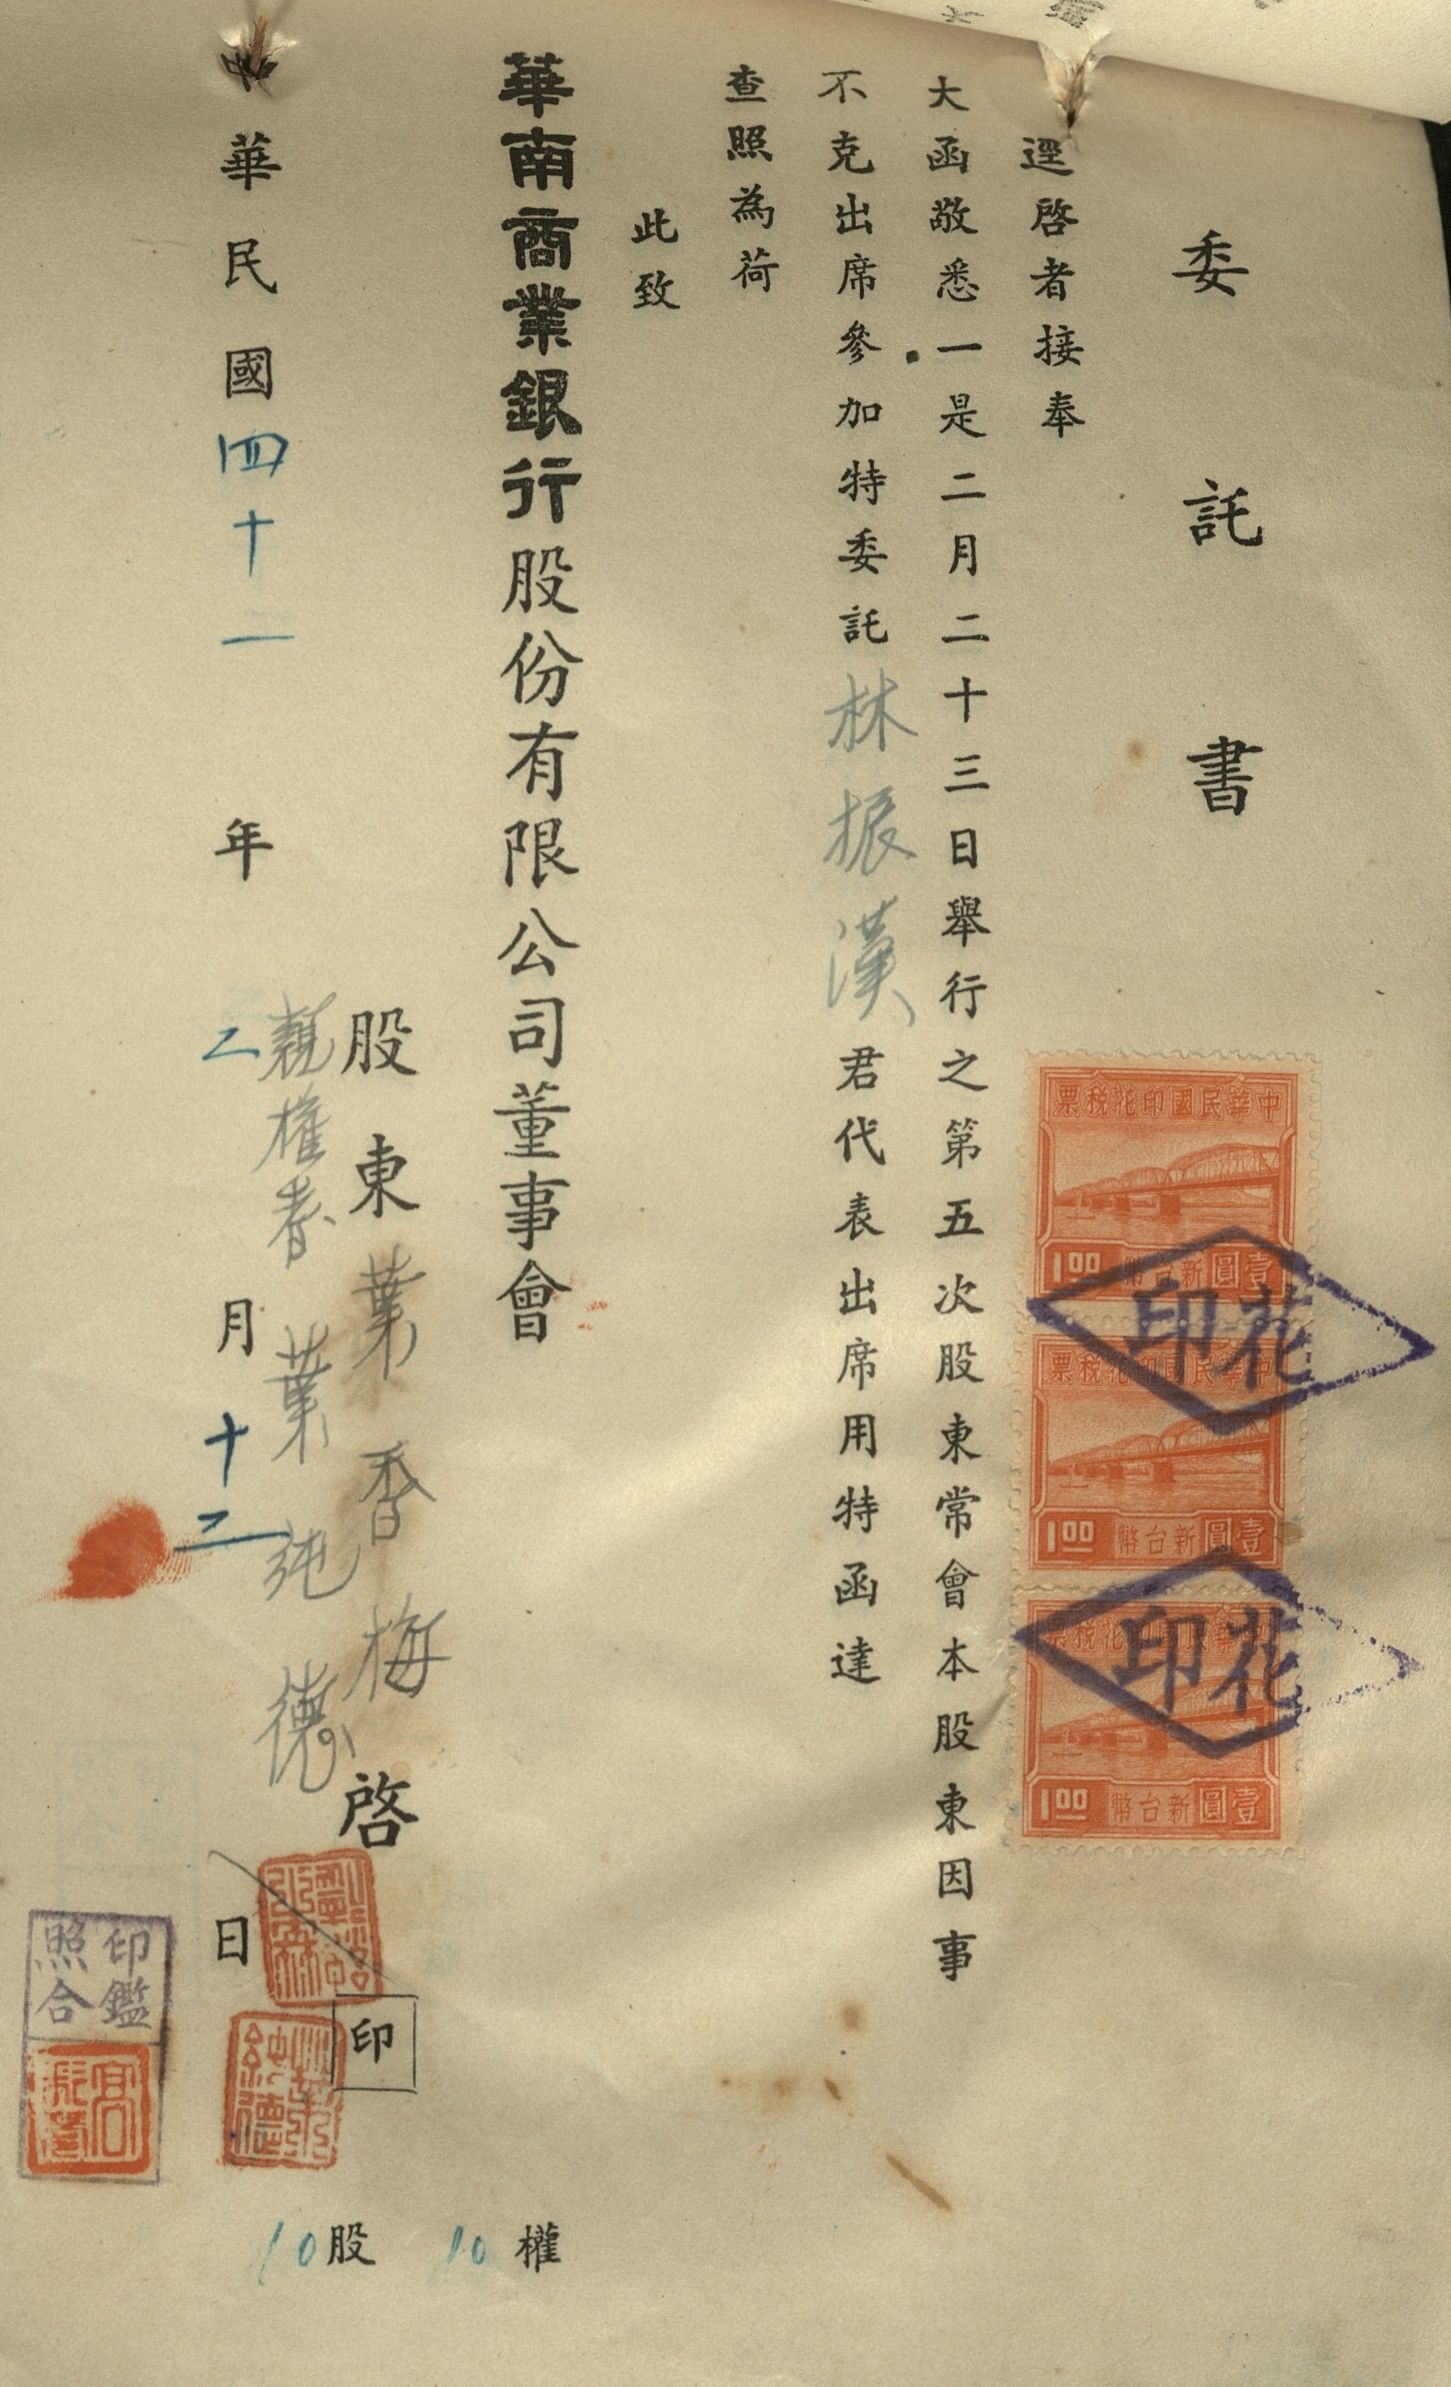 委託書
逕啓者接奉
大函敬悉一是二月二十三日舉行之第五次股東常會本股東因事
不克出席參加特委託林振漢君代表出席用特函達
查照為荷
此致
華南商業銀行股份有限公司董事會
股東葉香梅啓
親權者葉純德
印
中華民國四十二年二月十二日
10股
10權
中華民國印花稅票
1.00 新台幣壹圓
中華民國印花稅票
1.00 新台幣壹圓
中華民國印花稅票
1.00 新台幣壹圓
印花
印花
葉純德
印鑑
照合